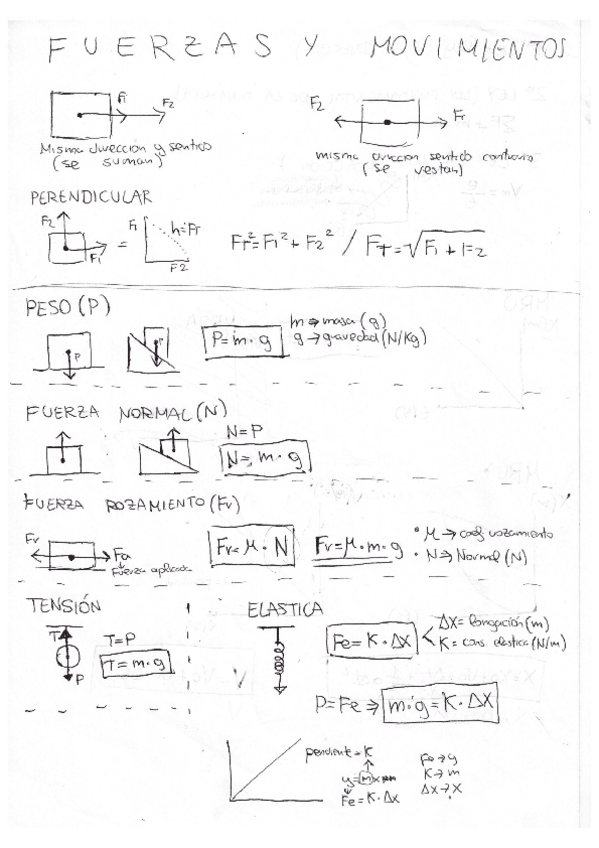 FUERZAS Y MOVIMIENTOS
F1 F2
F2 Fr
Misma dirección y sentido
(se suman)
misma dirección sentido contrario
(se restan)
PERENDICULAR
F2 F1 = F1 h=Fr F2
Fr²=F1²+F2² / Fr=√F1+F2
PESO (P)
P P
P=m·g
m→masa (g)
g→gravedad (N/Kg)
FUERZA NORMAL (N)
N=P
N=m·g
FUERZA ROZAMIENTO (Fr)
Fr Fa
Fuerza aplicada
Fr=μ·N Fr=μ·m·g
• μ→coef rozamiento
• N→Normal (N)
TENSIÓN
T P
T=P
T=m·g
ELASTICA
Fe=K·ΔX
ΔX=Elongación (m)
K=cons. elastica (N/m)
P=Fe⇒ m·g=K·ΔX
pendiente=K
Fe=K·ΔX
Fe→y
K→m
ΔX→X